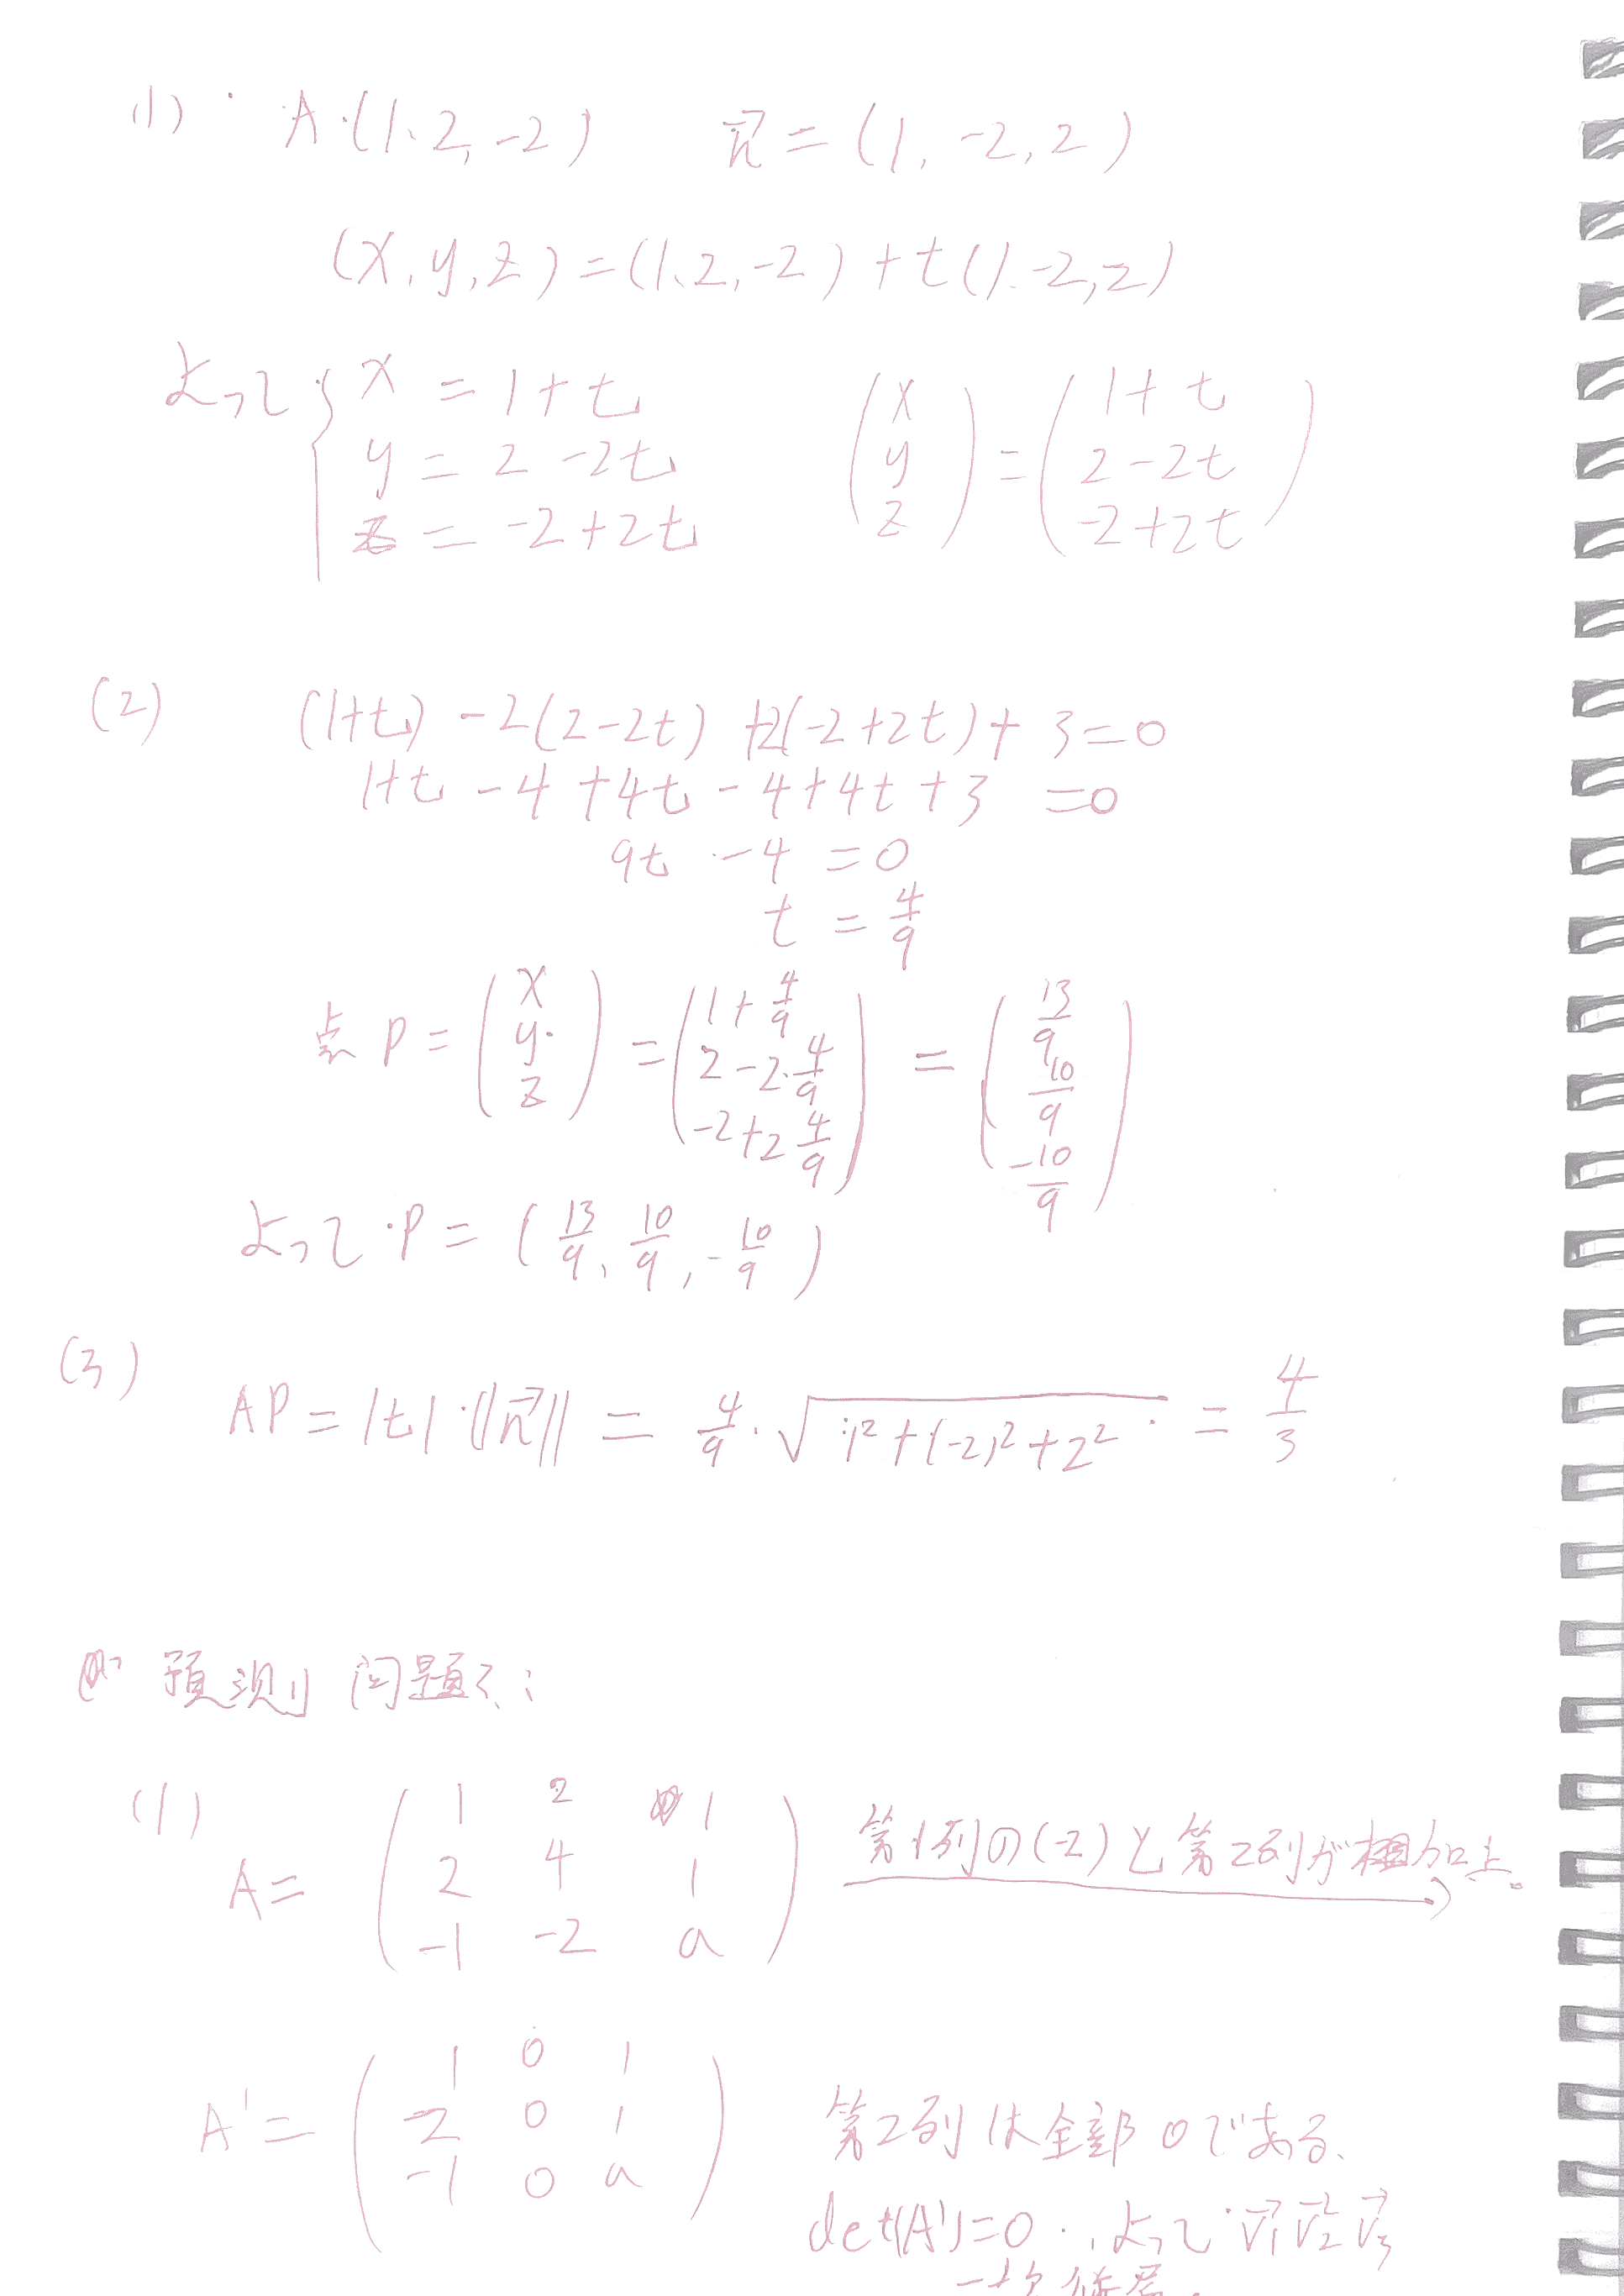 (1) A(1, 2, -2) n⃗ = (1, -2, 2)
(x, y, z) = (1, 2, -2) + t(1, -2, 2)
よって { x = 1+t
y = 2 -2t
z = -2+2t
(x y z) = (1+t 2-2t -2+2t)
(2) (1+t) -2(2-2t) +2(-2+2t) + 3 = 0
1+t -4 +4t -4+4t +3 = 0
9t -4 = 0
t = 4/9
点 P = (x y z) = (1+4/9 2-2·4/9 -2+2 4/9) = (13/9 10/9 -10/9)
よって P = (13/9, 10/9, -10/9)
(3) AP = |t|·||n⃗|| = 4/9 · √(1²+(-2)²+2²) = 4/3
預測問題
(1)
A = ( 1 2 1
2 4 1
-1 -2 a )
第1列の(-2)と第2列が相加上。
A' = ( 1 0 1
2 0 1
-1 0 a )
第2列は全部0である、
det(A')=0. よって v⃗1 v⃗2 v⃗3
一次